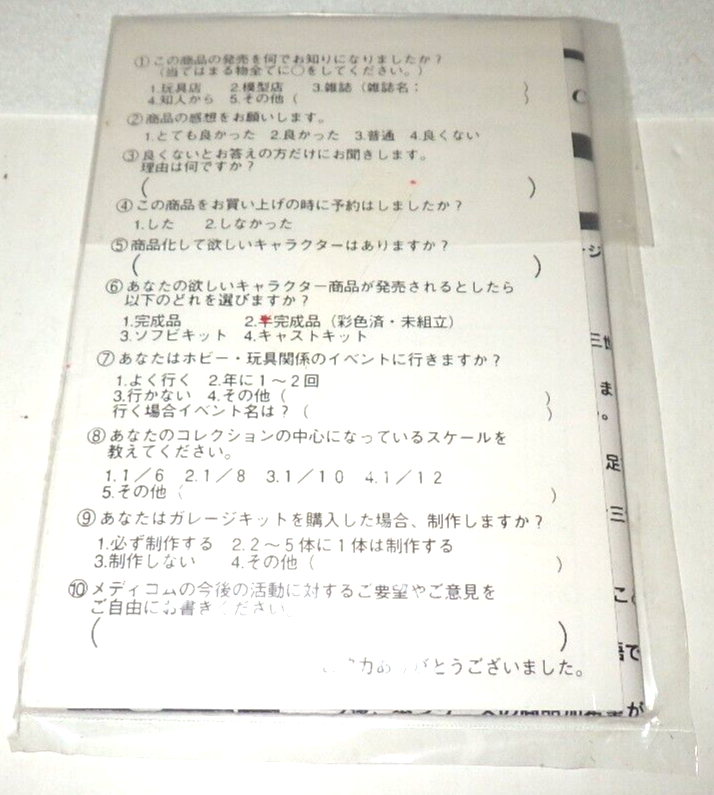 ①この商品の発売を何でお知りになりましたか?
(当てはまる物全てに○をしてください。)
1.玩具店 2.模型店 3.雑誌(雑誌名: )
4.知人から 5.その他( )
②商品の感想をお願いします。
1.とても良かった 2.良かった 3.普通 4.良くない
③良くないとお答えの方だけにお聞きします。
理由は何ですか?
( )
④この商品をお買い上げの時に予約はしましたか?
1.した 2.しなかった
⑤商品化して欲しいキャラクターはありますか?
( )
⑥あなたの欲しいキャラクター商品が発売されるとしたら
以下のどれを選びますか?
1.完成品 2.半完成品(彩色済・未組立)
3.ソフビキット 4.キャストキット
⑦あなたはホビー・玩具関係のイベントに行きますか?
1.よく行く 2.年に1~2回
3.行かない 4.その他( )
行く場合イベント名は?( )
⑧あなたのコレクションの中心になっているスケールを
教えてください。
1.1/6 2.1/8 3.1/10 4.1/12
5.その他( )
⑨あなたはガレージキットを購入した場合、制作しますか?
1.必ず制作する 2.2~5体に1体は制作する
3.制作しない 4.その他( )
⑩メディコムの今後の活動に対するご要望やご意見を
ご自由にお書きください。
( )
力ありがとうございました。